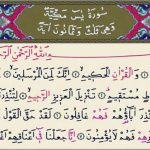 سُورَةُ يٰسٓ مَكِّيَّةٌ
وَهِيَ ثَلَاثٌ وَثَمَانُونَ آيَةً
بِسْمِ اللَّهِ الرَّحْمٰنِ الرَّحِيمِ
وَالْقُرْآنِ الْحَكِيمِ إِنَّكَ لَمِنَ الْمُرْسَلِينَ
مُسْتَقِيمٍ تَنْزِيلَ الْعَزِيزِ الرَّحِيمِ لِتُنْذِرَ
آبَاؤُهُمْ فَهُمْ غَافِلُونَ لَقَدْ حَقَّ
فَهُمْ لَا يُؤْمِنُونَ إِنَّا جَعَلْنَا فِي أَعْنَاقِهِمْ